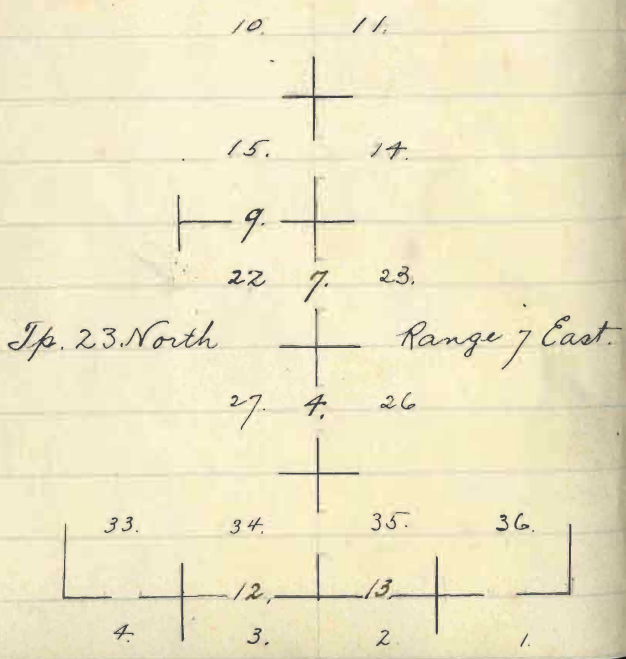 10. 11.
15. 14.
9.
22 7. 23.
Tp. 23. North Range 7 East.
27. 4. 26
33. 34. 35. 36.
12. 13
4. 3. 2 1.